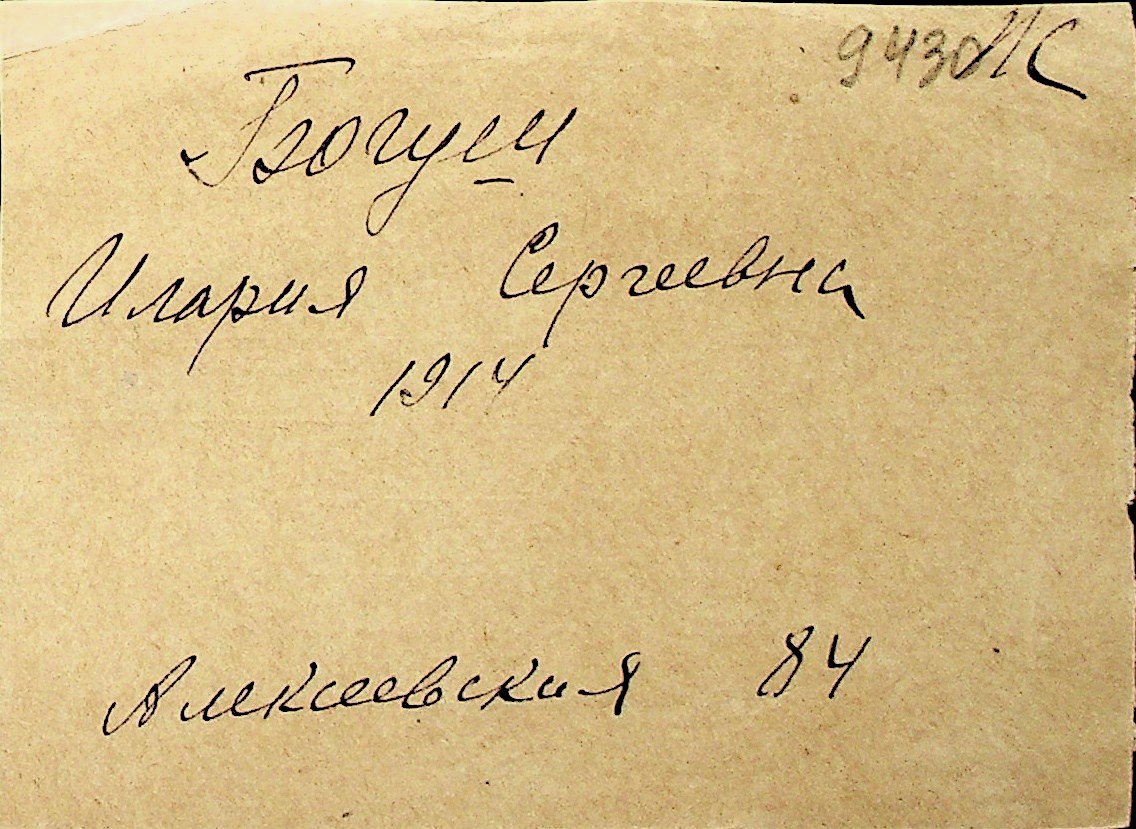 9430 МС
Богуш
Илария Сергеевна
1914
Алексеевския 84